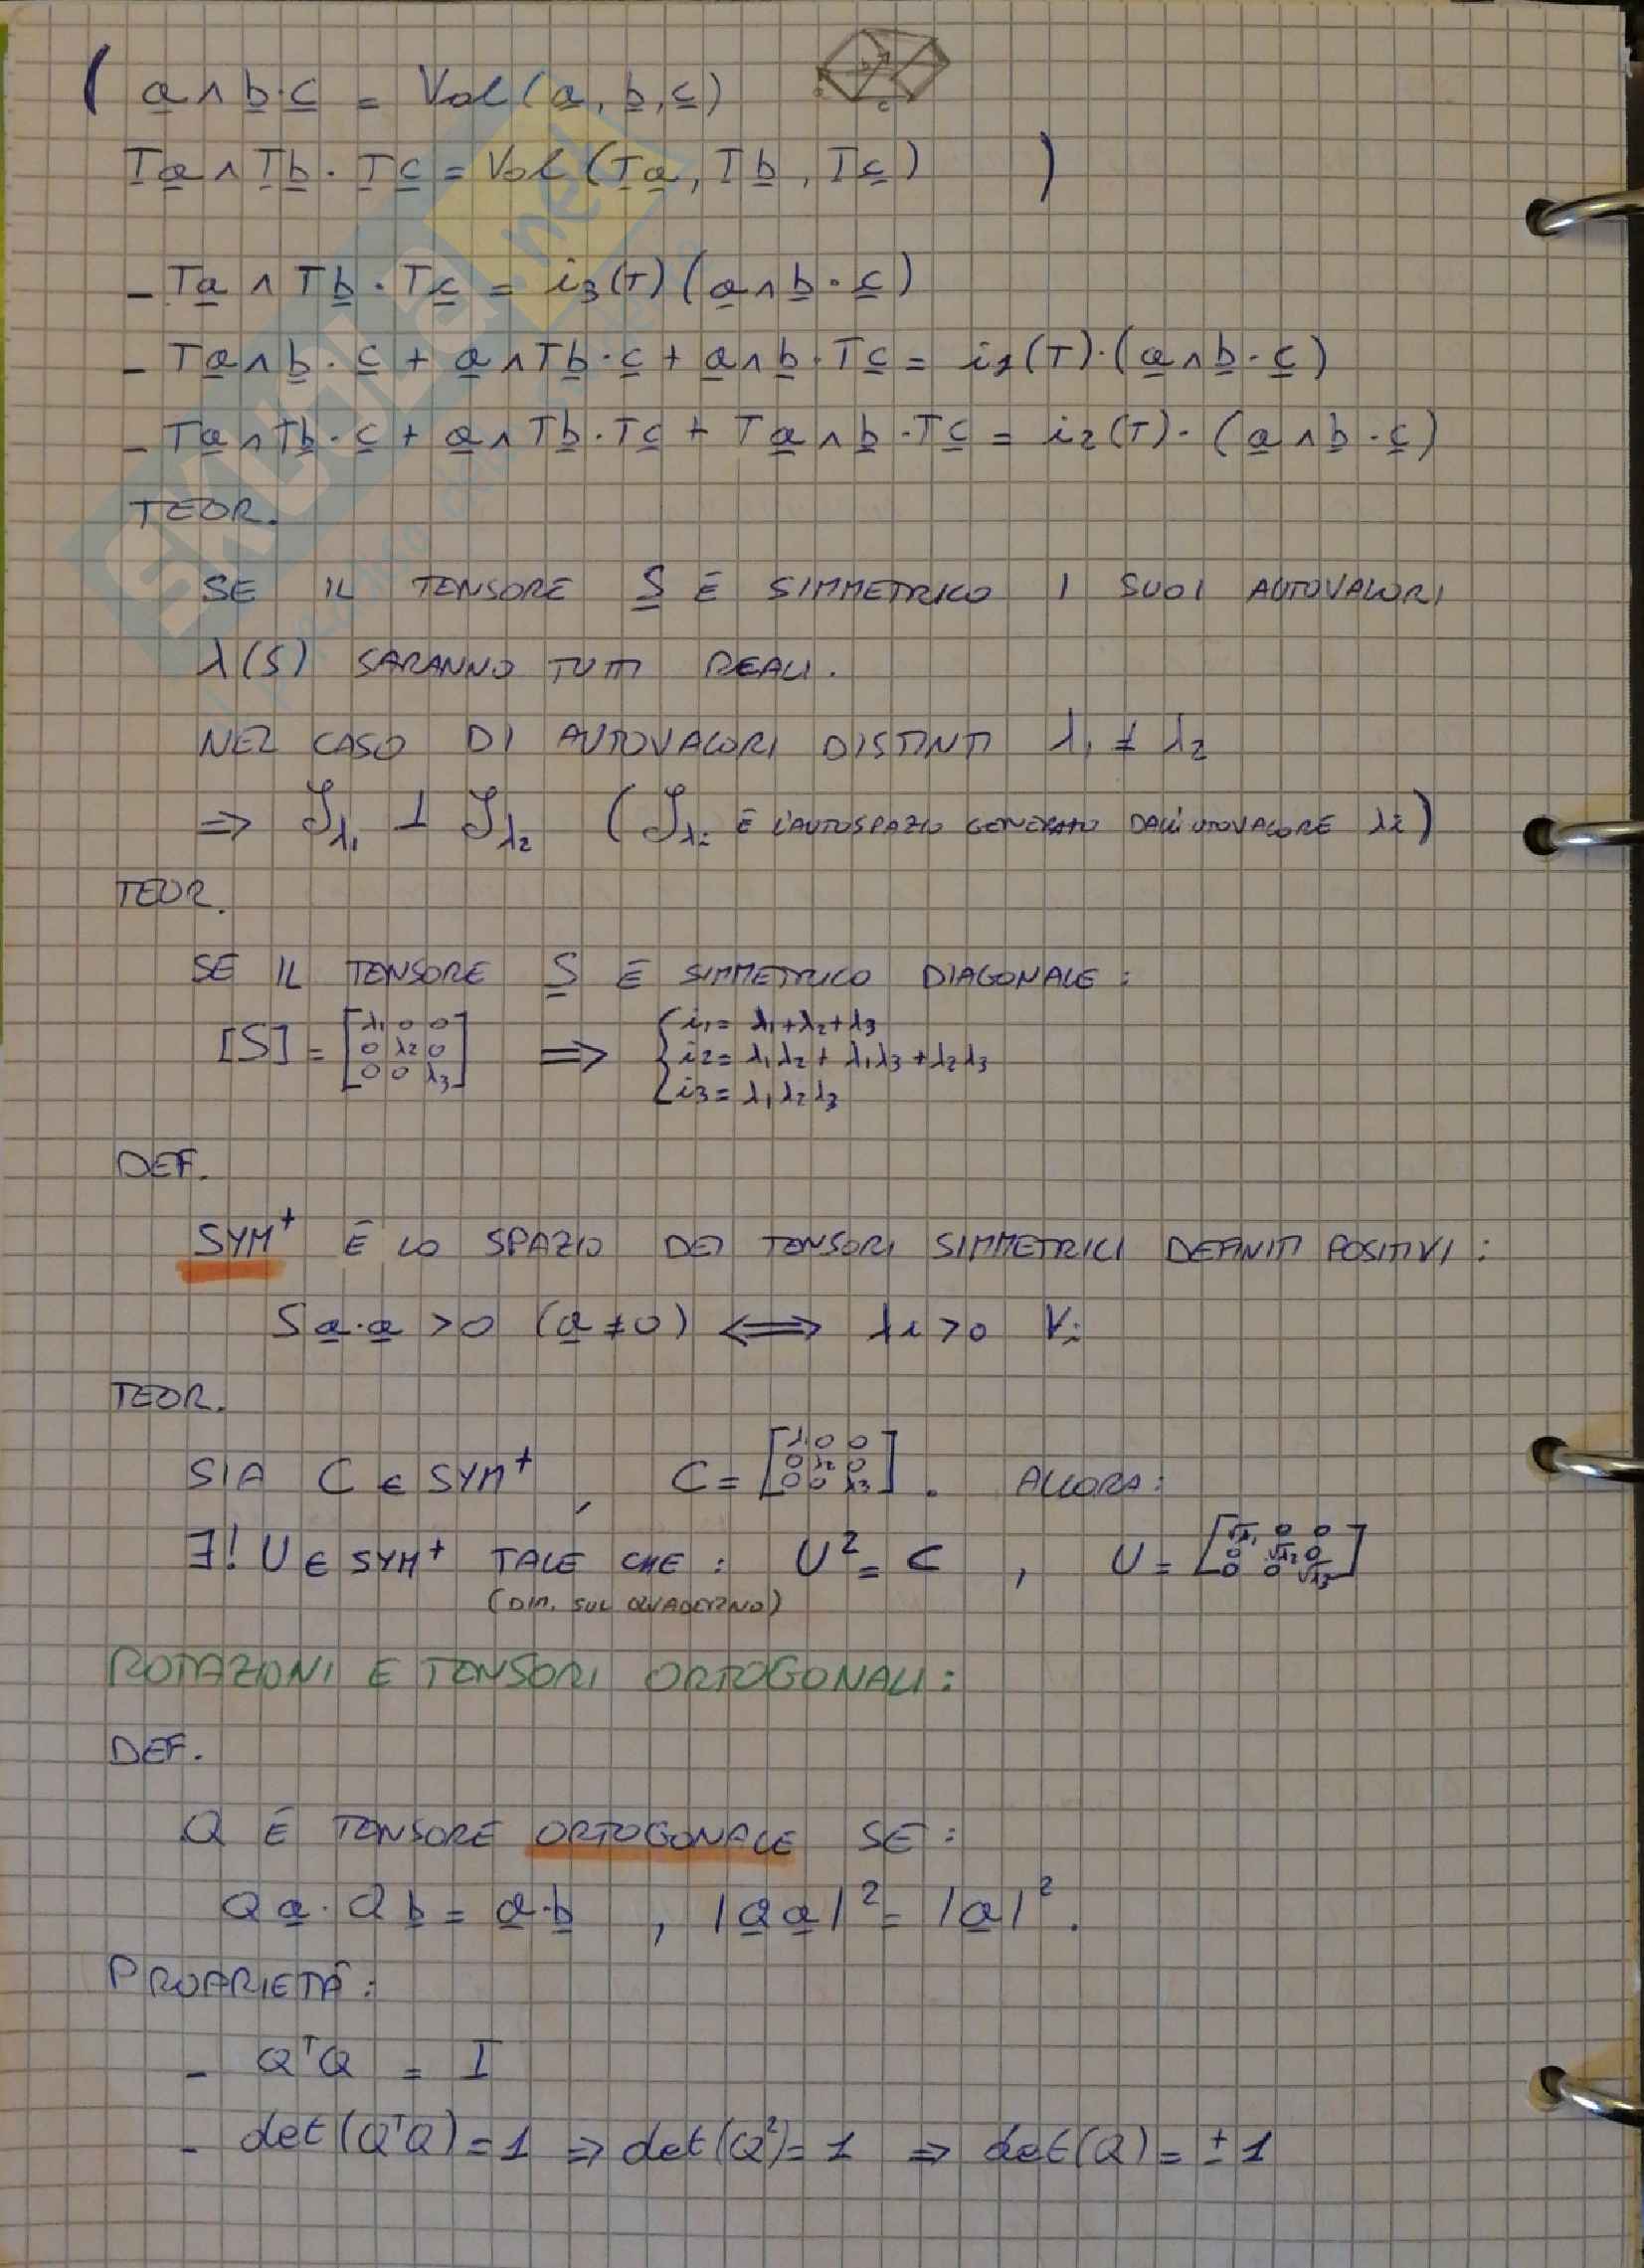 ( a∧b·c = Vol(a, b, c)
Ta∧Tb·Tc = Vol(Ta, Tb, Tc) )
- Ta∧Tb·Tc = i3(T)(a∧b·c)
- Ta∧b·c + a∧Tb·c + a∧b·Tc = i1(T)·(a∧b·c)
- Ta∧Tb·c + a∧Tb·Tc + Ta∧b·Tc = i2(T)·(a∧b·c)
TEOR.
SE IL TENSORE S È SIMMETRICO I SUOI AUTOVALORI
λ(S) SARANNO TUTTI REALI.
NEL CASO DI AUTOVALORI DISTINTI λ1 ≠ λ2
⇒ 𝒮λ1 ⊥ 𝒮λ2 (𝒮λi È L'AUTOSPAZIO GENERATO DALL'AUTOVALORE λi)
TEOR.
SE IL TENSORE S È SIMMETRICO DIAGONALE:
[S] = [λ1 0 0; 0 λ2 0; 0 0 λ3] ⇒ { i1 = λ1+λ2+λ3
i2 = λ1λ2 + λ1λ3 + λ2λ3
i3 = λ1λ2λ3
DEF.
SYM+ È LO SPAZIO DEI TENSORI SIMMETRICI DEFINITI POSITIVI:
Sa·a > 0 (a ≠ 0) ⟺ λi > 0 ∀i
TEOR.
SIA C ∈ SYM+, C = [λ1 0 0; 0 λ2 0; 0 0 λ3]. ALLORA:
∃! U ∈ SYM+ TALE CHE: U² = C, U = [√λ1 0 0; 0 √λ2 0; 0 0 √λ3]
(DIM. SUL QUADERNO)
ROTAZIONI E TENSORI ORTOGONALI:
DEF.
Q È TENSORE ORTOGONALE SE:
Qa·Qb = a·b, |Qa|² = |a|².
PROPRIETÀ:
- QᵀQ = I
- det(QᵀQ) = 1 ⇒ det(Q²) = 1 ⇒ det(Q) = ±1